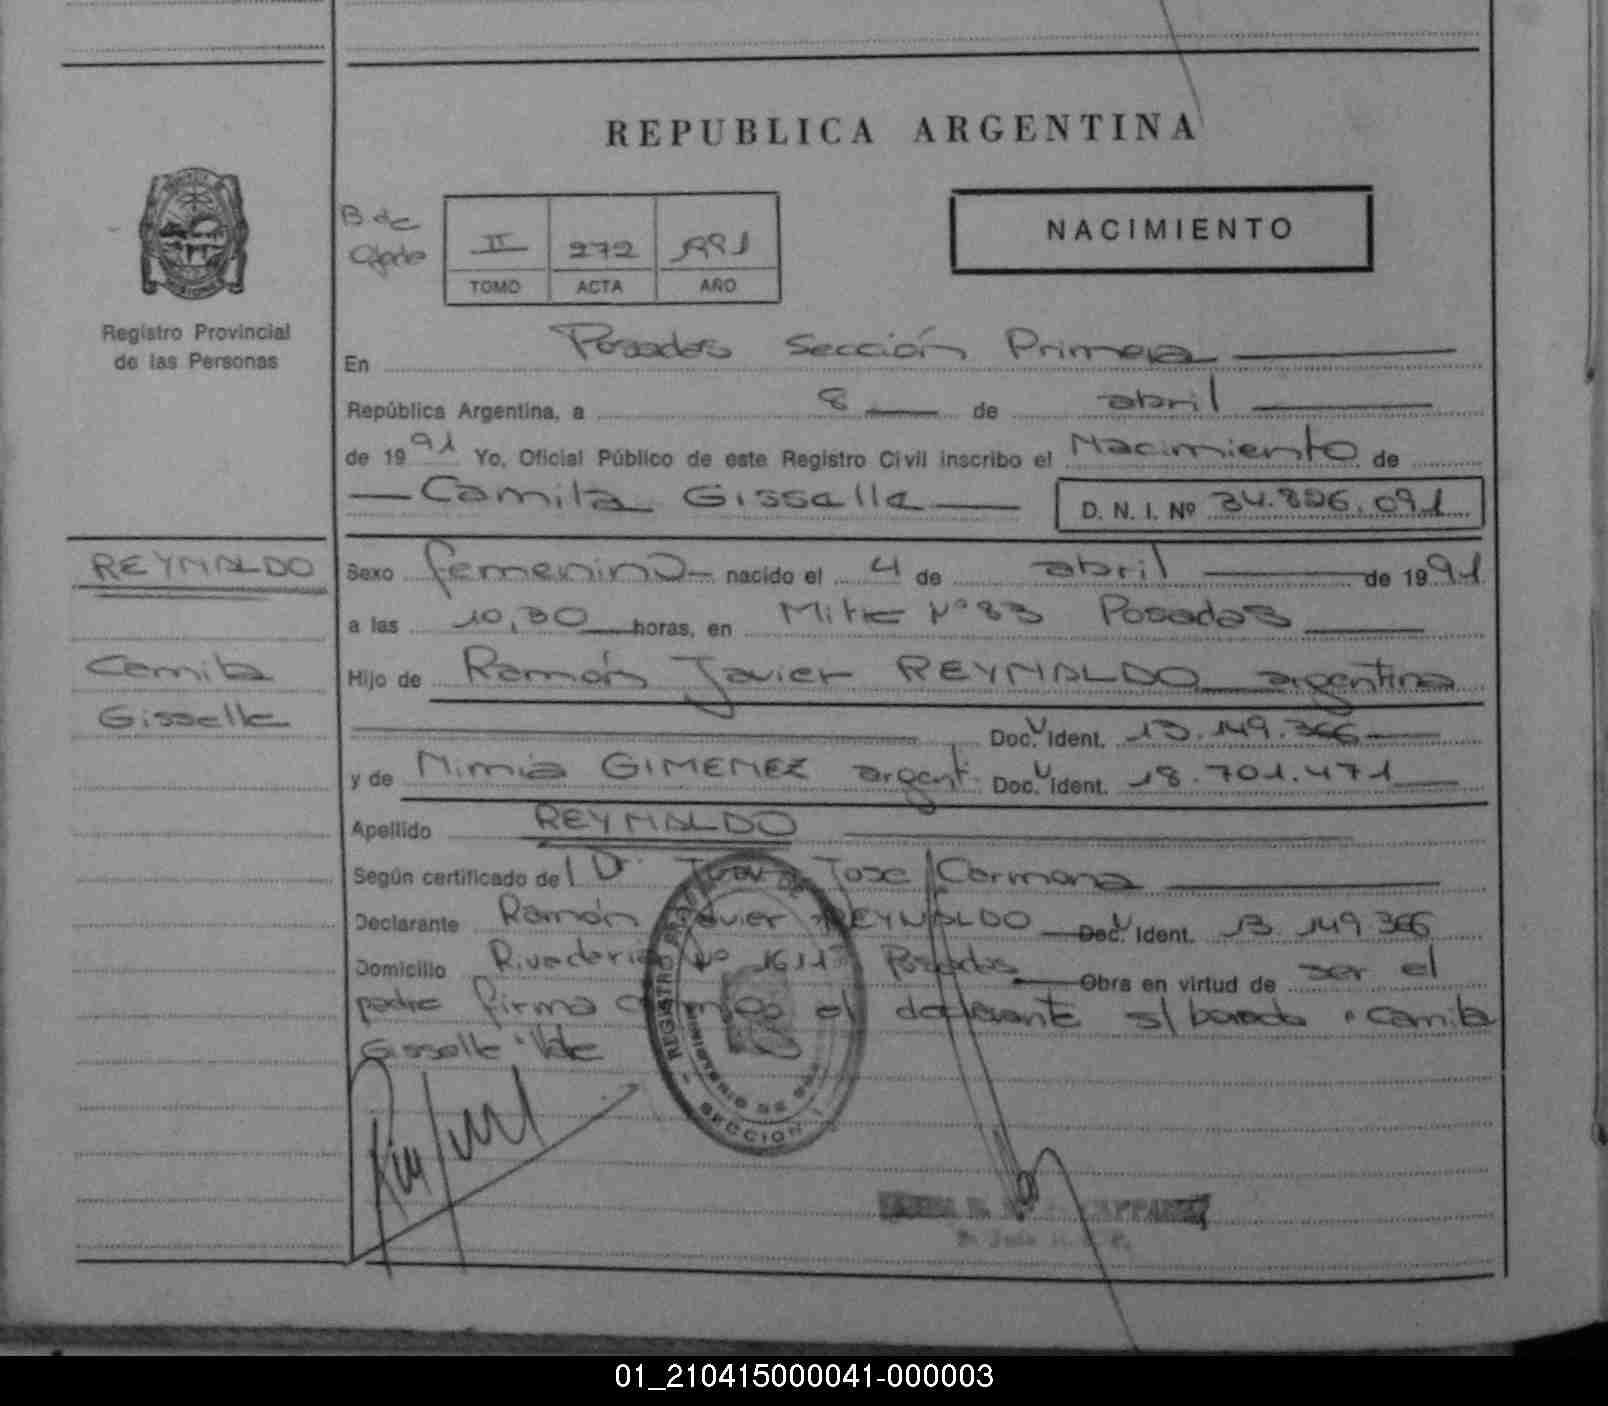 REPUBLICA ARGENTINA
B de
II 272 1991
TOMO ACTA AÑO
NACIMIENTO
Registro Provincial
de las Personas
En Posadas Sección Primera
República Argentina, a 8 de abril
de 1991 Yo, Oficial Público de este Registro Civil inscribo el Nacimiento de
Camila Gisselle
D. N. I. Nº 34.826.091
REYNALDO
Camila
Gisselle
Sexo femenino nacido el 4 de abril de 1991
a las 10,30 horas, en Mitre Nº 83 Posadas
Hijo de Ramón Javier REYNALDO argentina
Doc. U Ident. 13.149.366
y de Mimia GIMENEZ argent. Doc. U Ident. 18.701.471
Apellido REYNALDO
Según certificado del Dr. José Carmona
Declarante Ramón Javier REYNALDO Doc. U Ident. 13.149.366
Domicilio Rivadavia Nº 1611 Posadas Obra en virtud de ser el
padre firma conmigo el declarante s/ borrado "Camila
Gisselle" Vale
REGISTRO
MINISTERIO DE
SECCION 1
01_210415000041-000003